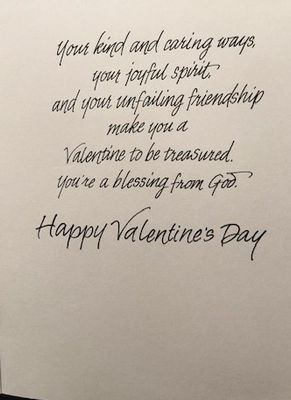 Your kind and caring ways,
your joyful spirit,
and your unfailing friendship
make you a
Valentine to be treasured.
You're a blessing from God.
Happy Valentine's Day